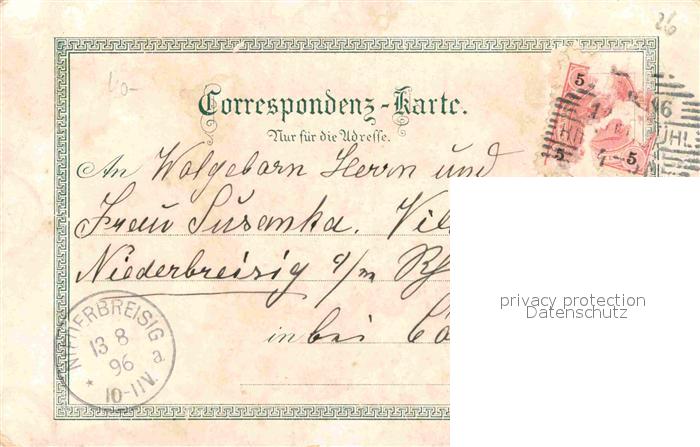 26
Correspondenz-Karte.
Nur für die Adresse.
An Wolgeborn Herrn und
Frau Susanka. Vil
Niederbreisig a/m Rh
in bei Cö
NIEDERBREISIG
13 8
96
a
* 10-11V.
5
5
5
16
privacy protection
Datenschutz